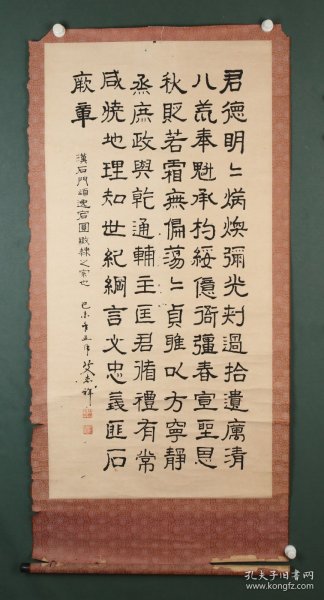 君德明〻炳煥彌光刾過拾遺厲清
八荒奉魁承杓綏億衙彊春宣聖恩
秋貶若霜無偏蕩〻貞雅以方寧靜
烝庶政與乾通輔主匡君循禮有常
咸曉地理知世紀綱言文忠義匪石
厥章
漢石門頌逸宕圓隸之宗也 己未年五月 祥
孔夫子旧书网